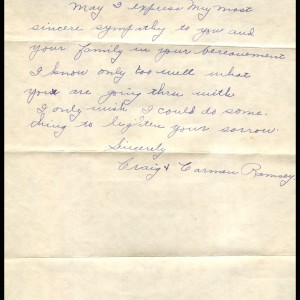 May I express my most
sincere sympathy to you and
your family in your bereavement
I know only too well what
you are going thru with
I only wish I could do some
thing to lighten your sorrow.
Sincerely
Craig & Carmen Ramsey